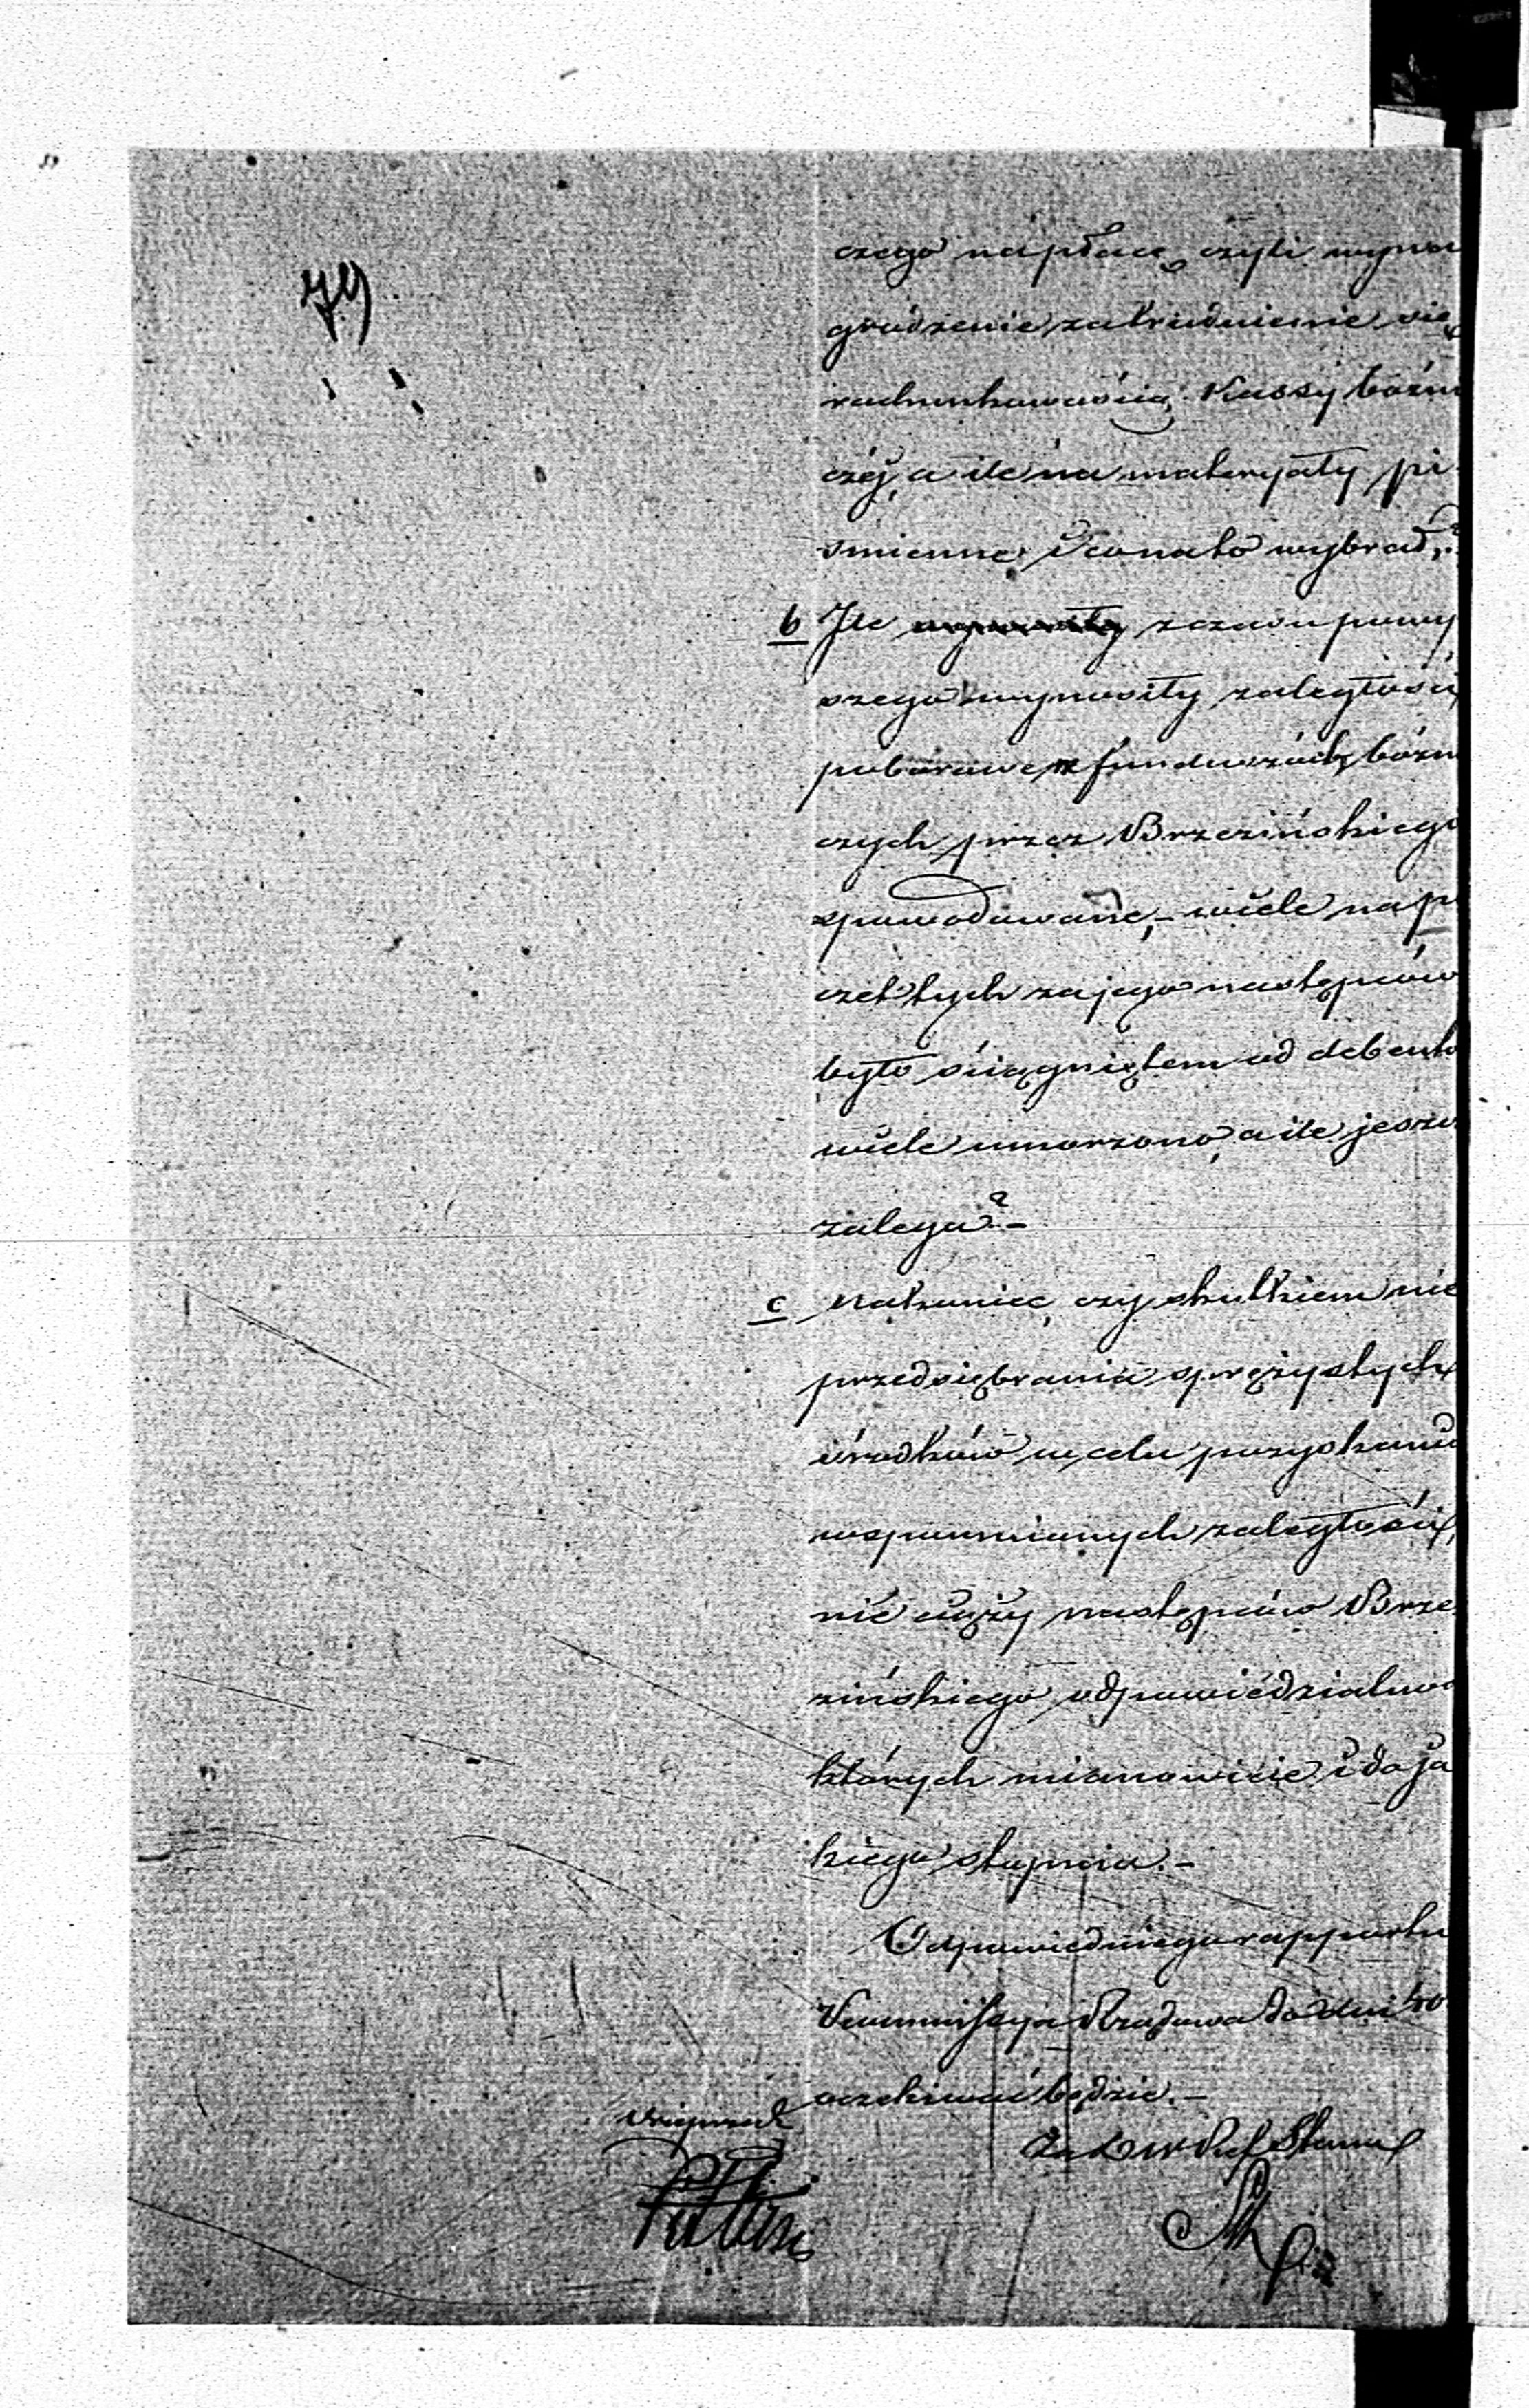 79
czego na płacę czyli wyna
grodzenie zatrudnienie się
rachunkowością Kassy bożni
czéj, a ile na materyały pi
śmienne i co na to wybrał?
b Ile z czasu powy
szego wynosiły zaległości
poborowe w funduszach bożni
czych przez Brzezińskiego
spowodowane, – wiele na po
czet tych za jego następców
było ściągniętem od debento
wiele umorzono, a ile jeszcz
zalega? –
c Nakoniec, czy skutkiem nie
przedsiębrania sprężystych
środków w celu pozyskania
wspomnianych zaległości,
nie cięży następców Brze
zińskiego odpowiedzialnoś
których mianowicie i do ja
kiego stopnia. –
Odpowiedniego rapportu
Kommissya Rządowa do dni 40
oczekiwać będzie. –